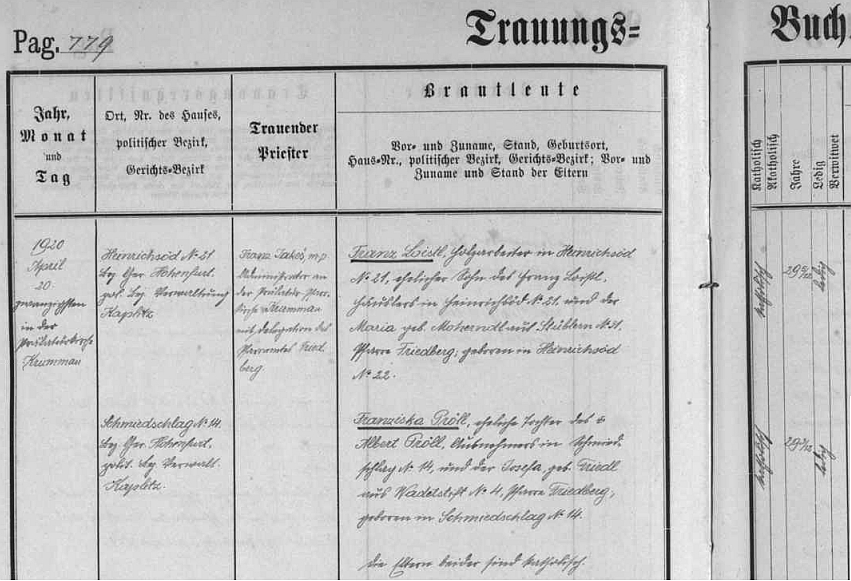 Pag. 779
Trauungs=
Buch
Jahr,
Monat
und
Tag
Ort, Nr. des Hauses,
politischer Bezirk,
Gerichts-Bezirk
Trauender
Priester
Brautleute
Vor- und Zuname, Stand, Geburtsort,
Haus-Nr., politischer Bezirk, Gerichts-Bezirk; Vor- und
Zuname und Stand der Eltern
Katholisch
Akatholisch
Jahre
Ledig
Verwitwet
1920
April
20.
zwanzigsten
in der
Prälaturkirche
Krummau
Heinrichsöd N° 21
bez. Ger. Hohenfurt.
pol. bez. Verwaltung
Kaplitz
Franz Jakeš m.p.
Administrator an
der Prälatur Pfarr-
kirche Krummau
mit Delegation des
Pfarramtes Fried
berg.
Franz Loistl, Holzarbeiter in Heinrichsöd
N° 21, ehelicher Sohn des Franz Loistl,
Häuslers in Heinrichsöd N° 21, und der
Maria geb. aus Stüblern N° 31.
Pfarre Friedberg; geboren in Heinrichsöd
N° 22.
katholisch
29
ledig
Schmiedschlag N° 14.
bez. Ger. Hohenfurt.
polit. bez. Verwalt.
Kaplitz.
Franziska Pröll, eheliche Tochter des
Albert Pröll, Ausnehmers in Schmied
schlag N° 14, und der Josefa, geb. Friedl
aus Wadetstift N° 4, Pfarre Friedberg;
geboren in Schmiedschlag N° 14.
die Eltern beider sind katholisch.
katholisch
29
ledig